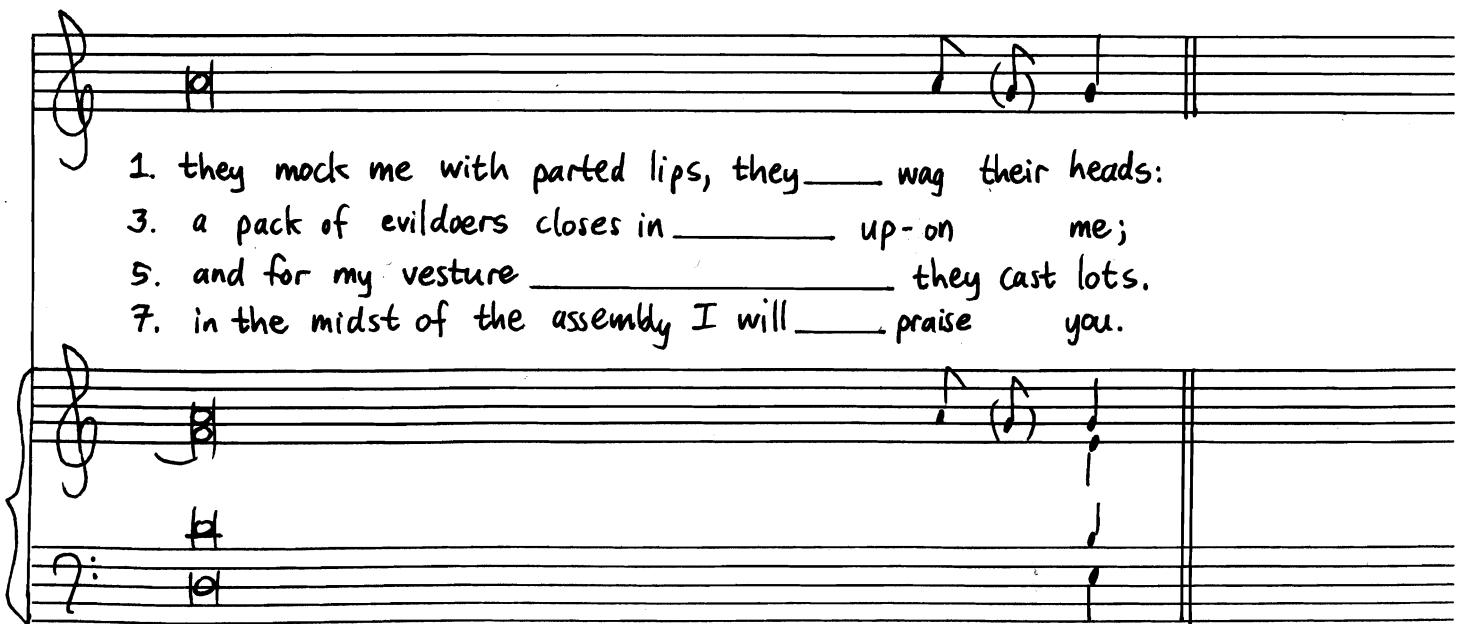 1. they mock me with parted lips, they____ wag their heads:
3. a pack of evildoers closes in __________ up-on me;
5. and for my vesture ______________________ they cast lots.
7. in the midst of the assembly I will_____ praise you.